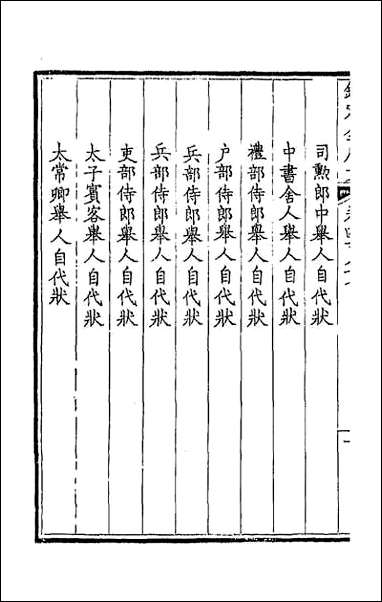 司勲郎中舉人自代狀
中書舍人舉人自代狀
禮部侍郎舉人自代狀
户部侍郎舉人自代狀
兵部侍郎舉人自代狀
兵部侍郎舉人自代狀
吏部侍郎舉人自代狀
太子賓客舉人自代狀
太常卿舉人自代狀